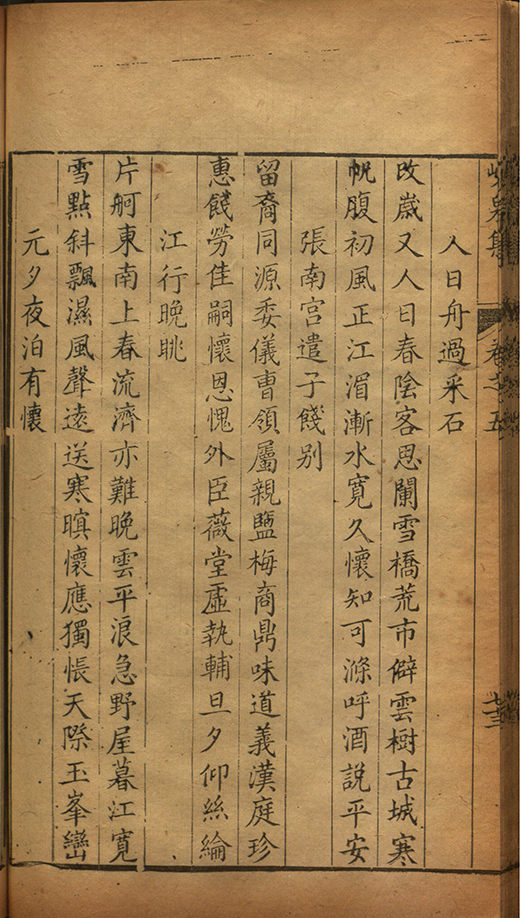 人日舟過采石
改歲又人日春陰客思闌雪橋荒市僻雲樹古城寒
帆腹初風正江湄漸水寬久懷知可滌呼酒說平安
張南宮遣子餞別
留裔同源委儀曹領屬親鹽梅商鼎味道義漢庭珍
惠餞勞佳嗣懷恩愧外臣薇堂虛執輔旦夕仰絲綸
江行晚眺
片舸東南上春流濟亦難晚雲平浪急野屋暮江寬
雪點斜飄濕風聲遠送寒暝懷應獨悵天際玉峯巒
元夕夜泊有懷
卷之五